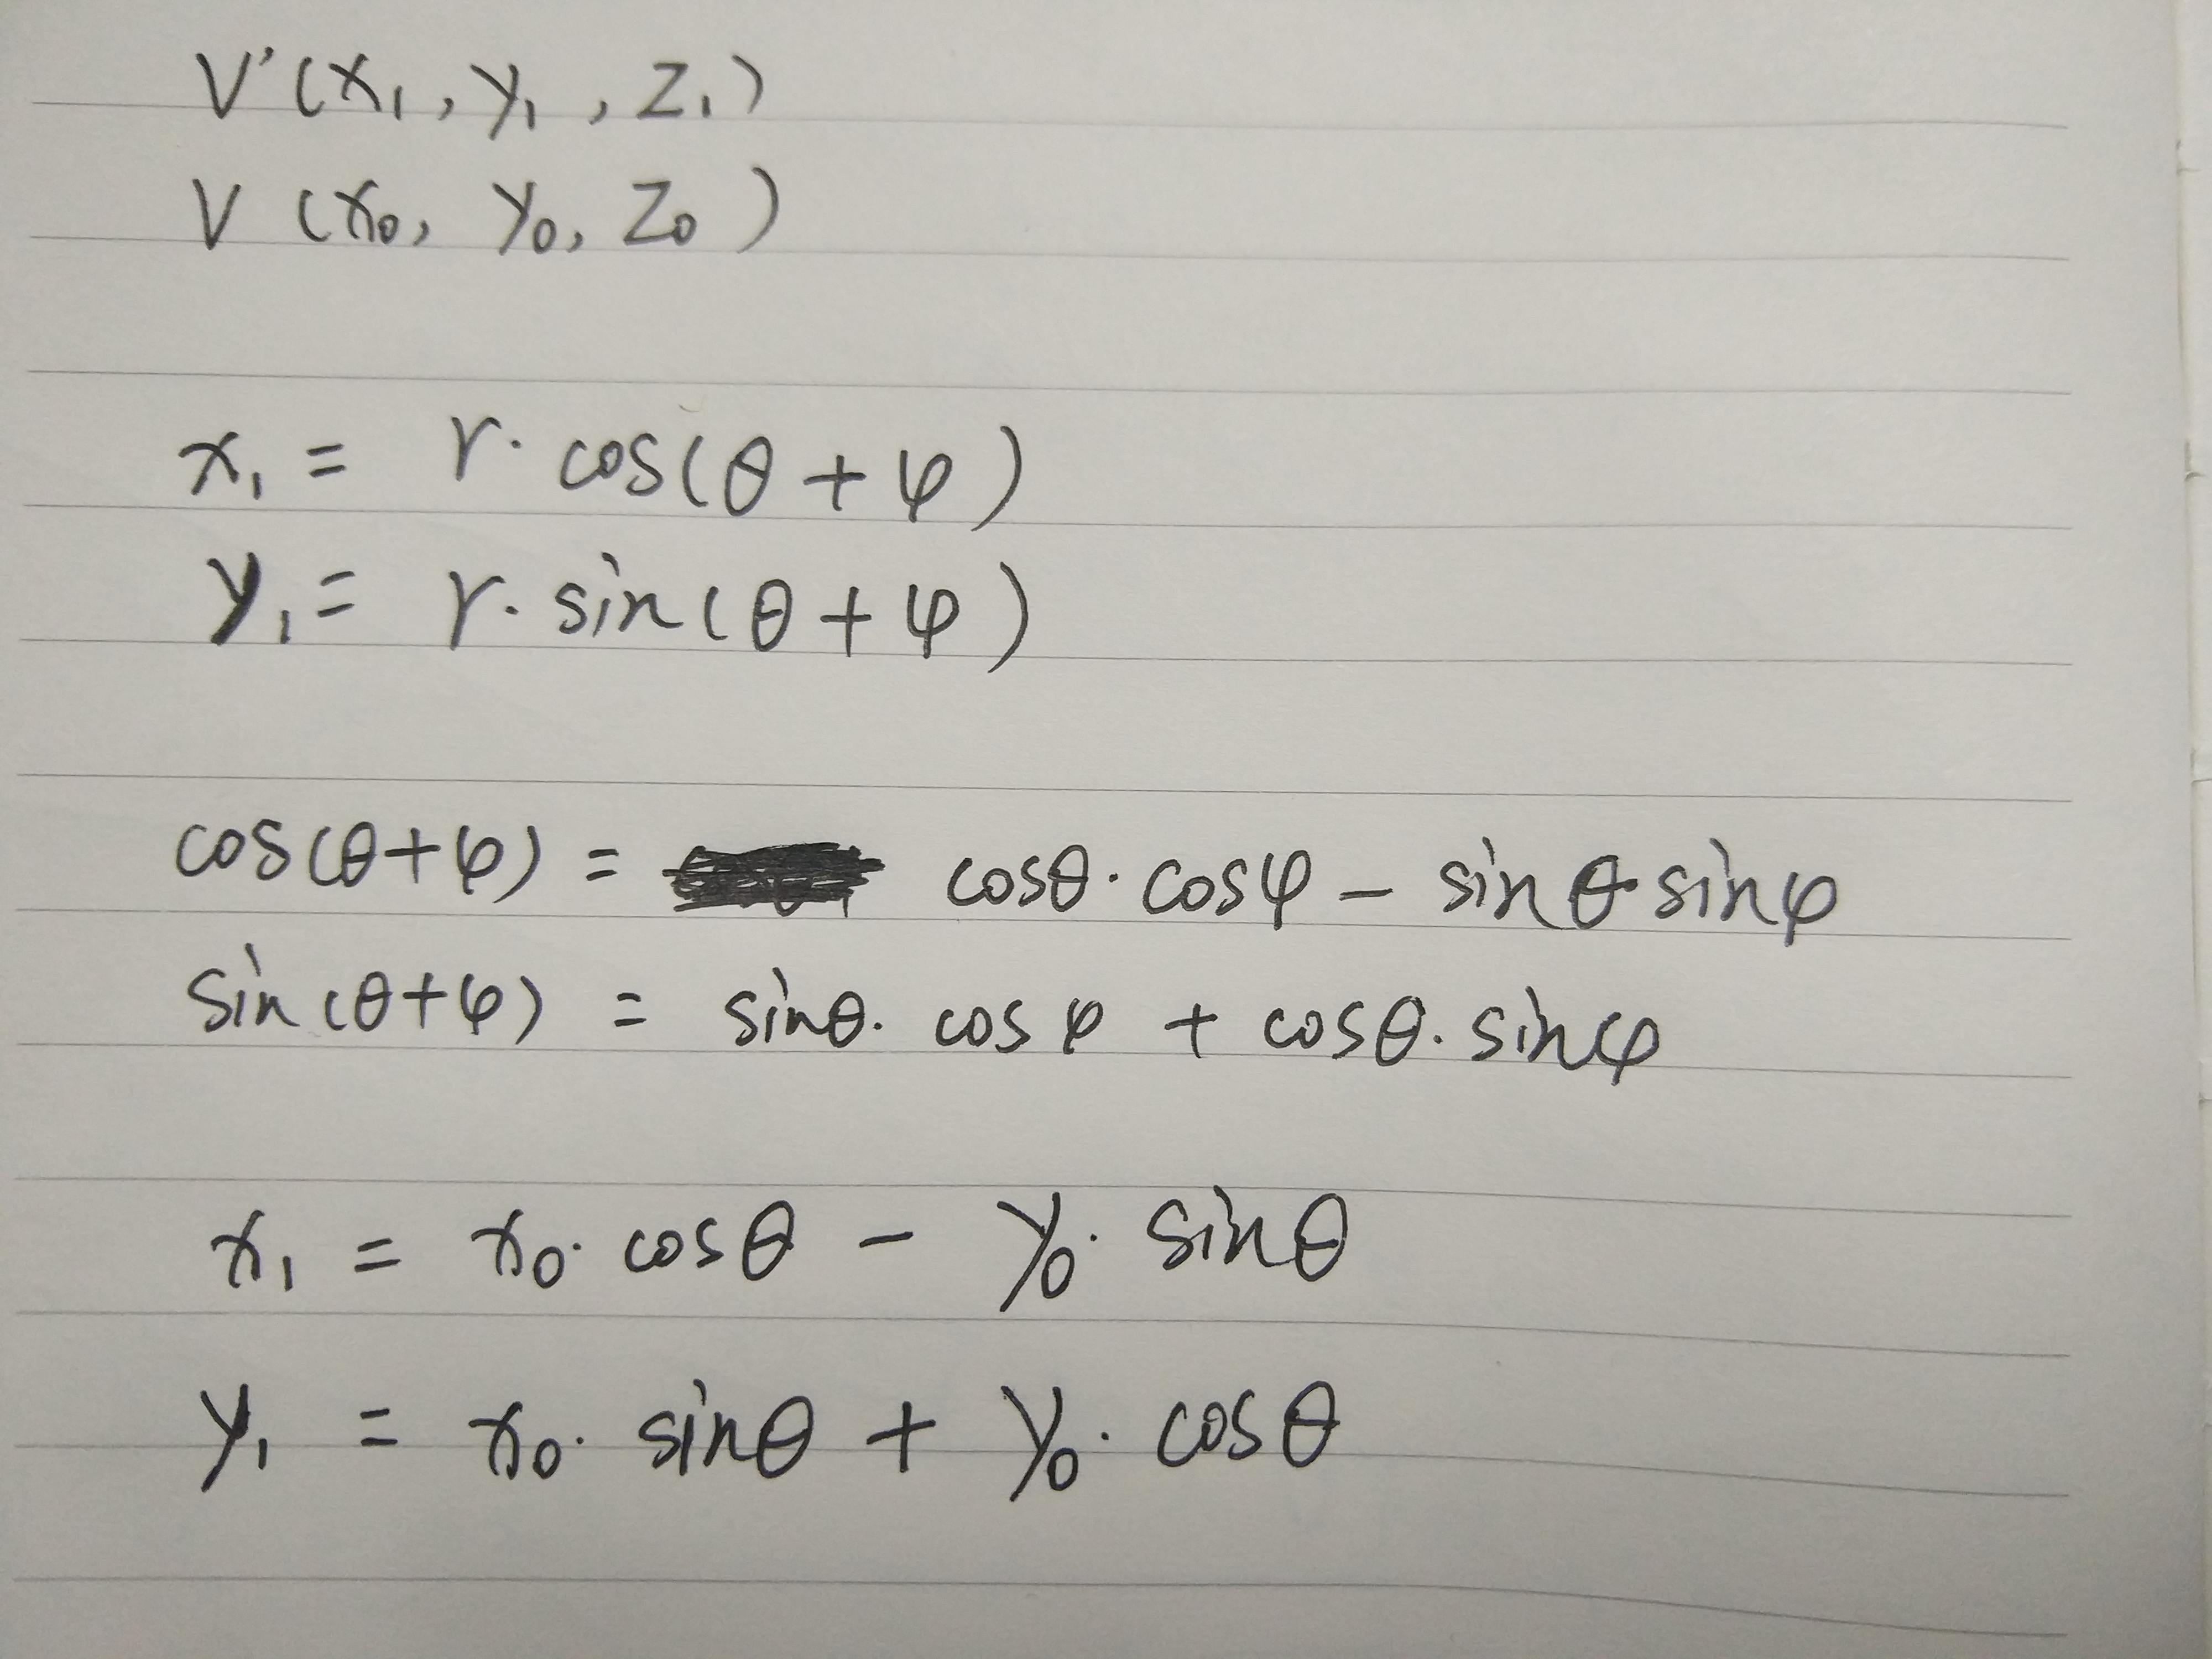 V'(x₁, y₁, z₁)
V (x₀, y₀, z₀)
x₁ = r· cos(θ + φ)
y₁ = r· sin(θ + φ)
cos(θ+φ) = cosθ· cosφ - sinθ·sinφ
sin(θ+φ) = sinθ· cosφ + cosθ· sinφ
x₁ = x₀· cosθ - y₀· sinθ
y₁ = x₀· sinθ + y₀· cosθ